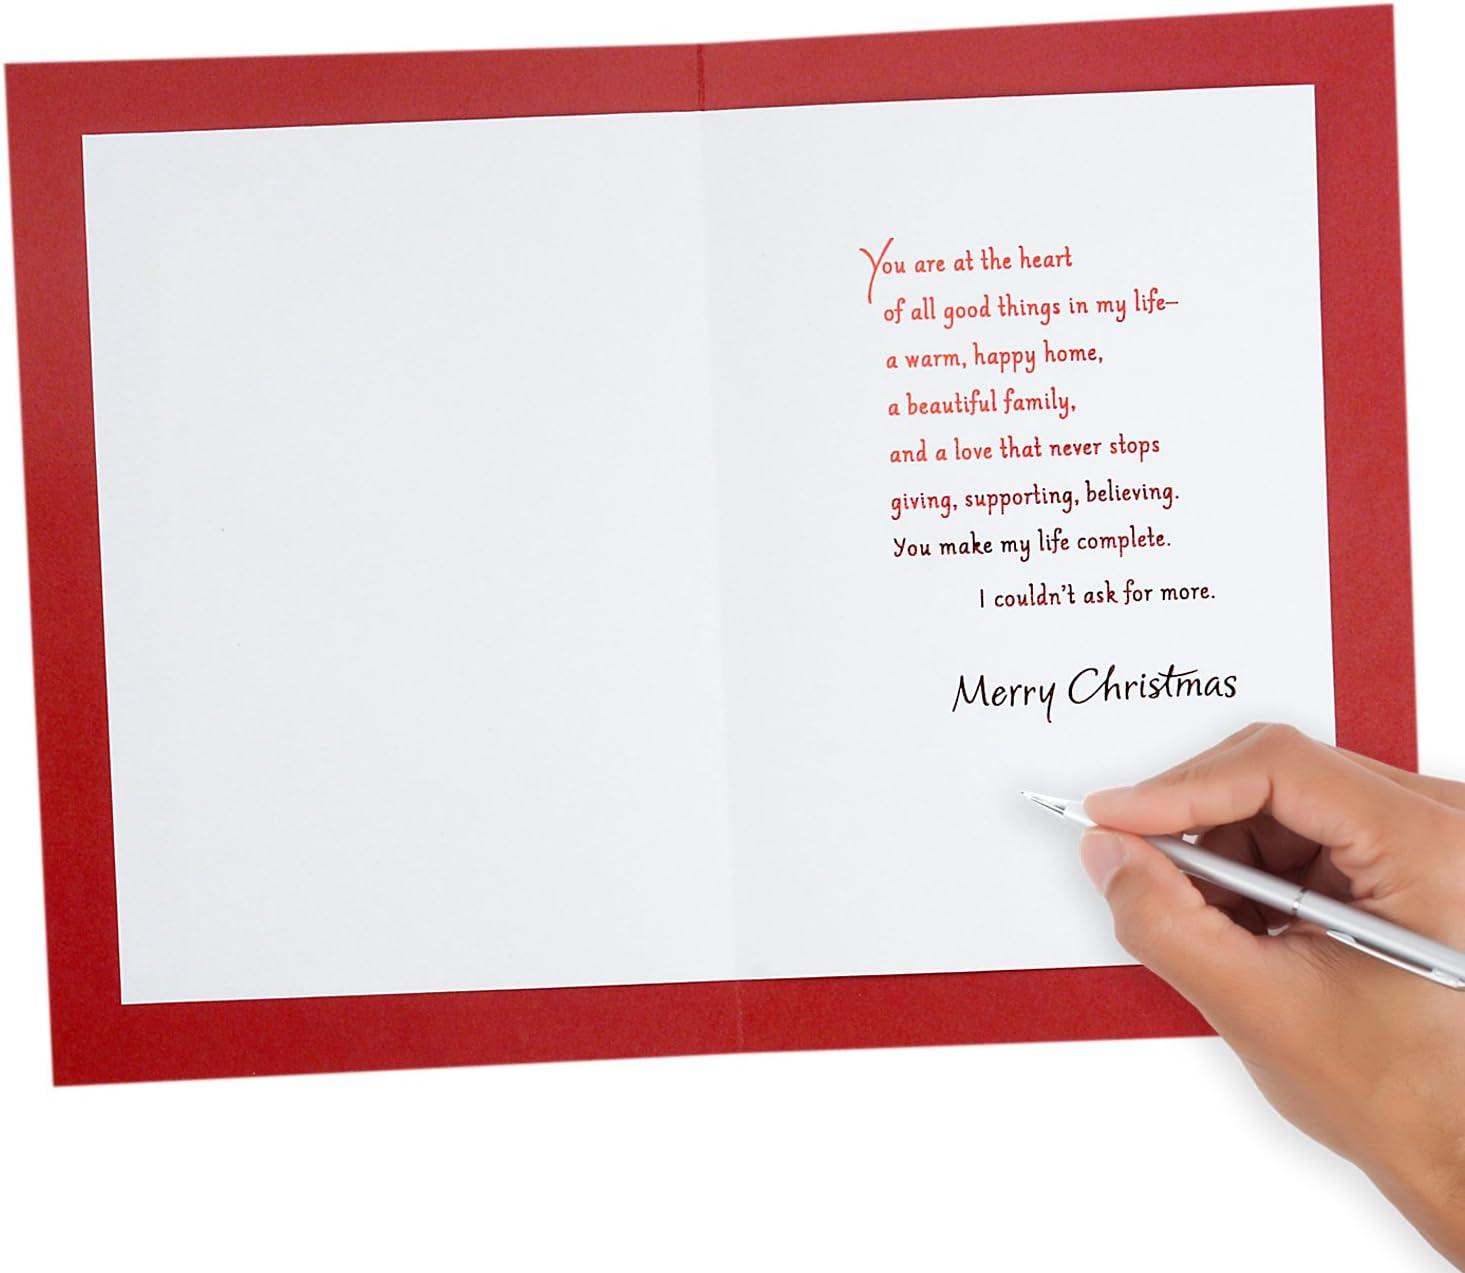 You are at the heart
of all good things in my life—
a warm, happy home,
a beautiful family,
and a love that never stops
giving, supporting, believing.
You make my life complete.
I couldn't ask for more.
Merry Christmas